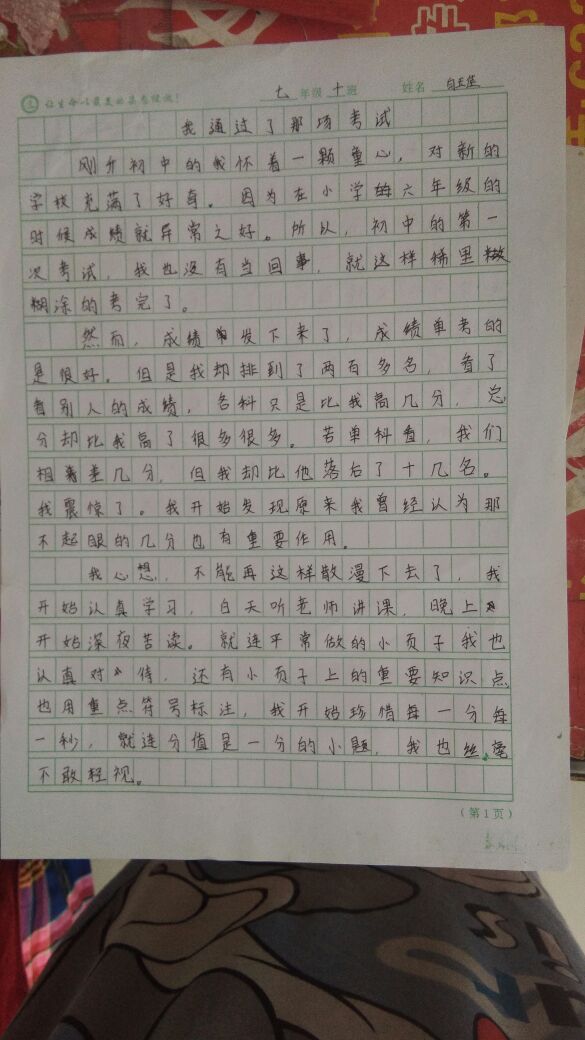 让生命以最美的姿态绽放！ 七 年级 十 班 姓名
我通过了那场考试
刚升初中的我怀着一颗童心，对新的
学校充满了好奇。因为在小学的六年级的
时候成绩就异常之好。所以，初中的第一
次考试，我也没有当回事，就这样稀里糊
糊涂的考完了。
然而，成绩单发下来了，成绩单考的
是很好。但是我却排到了两百多名，看了
看别人的成绩，各科只是比我高几分，总
分却比我高了很多很多。若单科看，我们
相差几分，但我却比他落后了十几名。
我震惊了。我开始发现原来我曾经认为那
不起眼的几分也有重要作用。
我心想，不能再这样散漫下去了，我
开始认真学习，白天听老师讲课，晚上
开始深夜苦读。就连平常做的小页子我也
认真对待，还有小页子上的重要知识点
也用重点符号标注，我开始珍惜每一分每
一秒，就连分值是一分的小题，我也丝毫
不敢轻视。
（第1页）